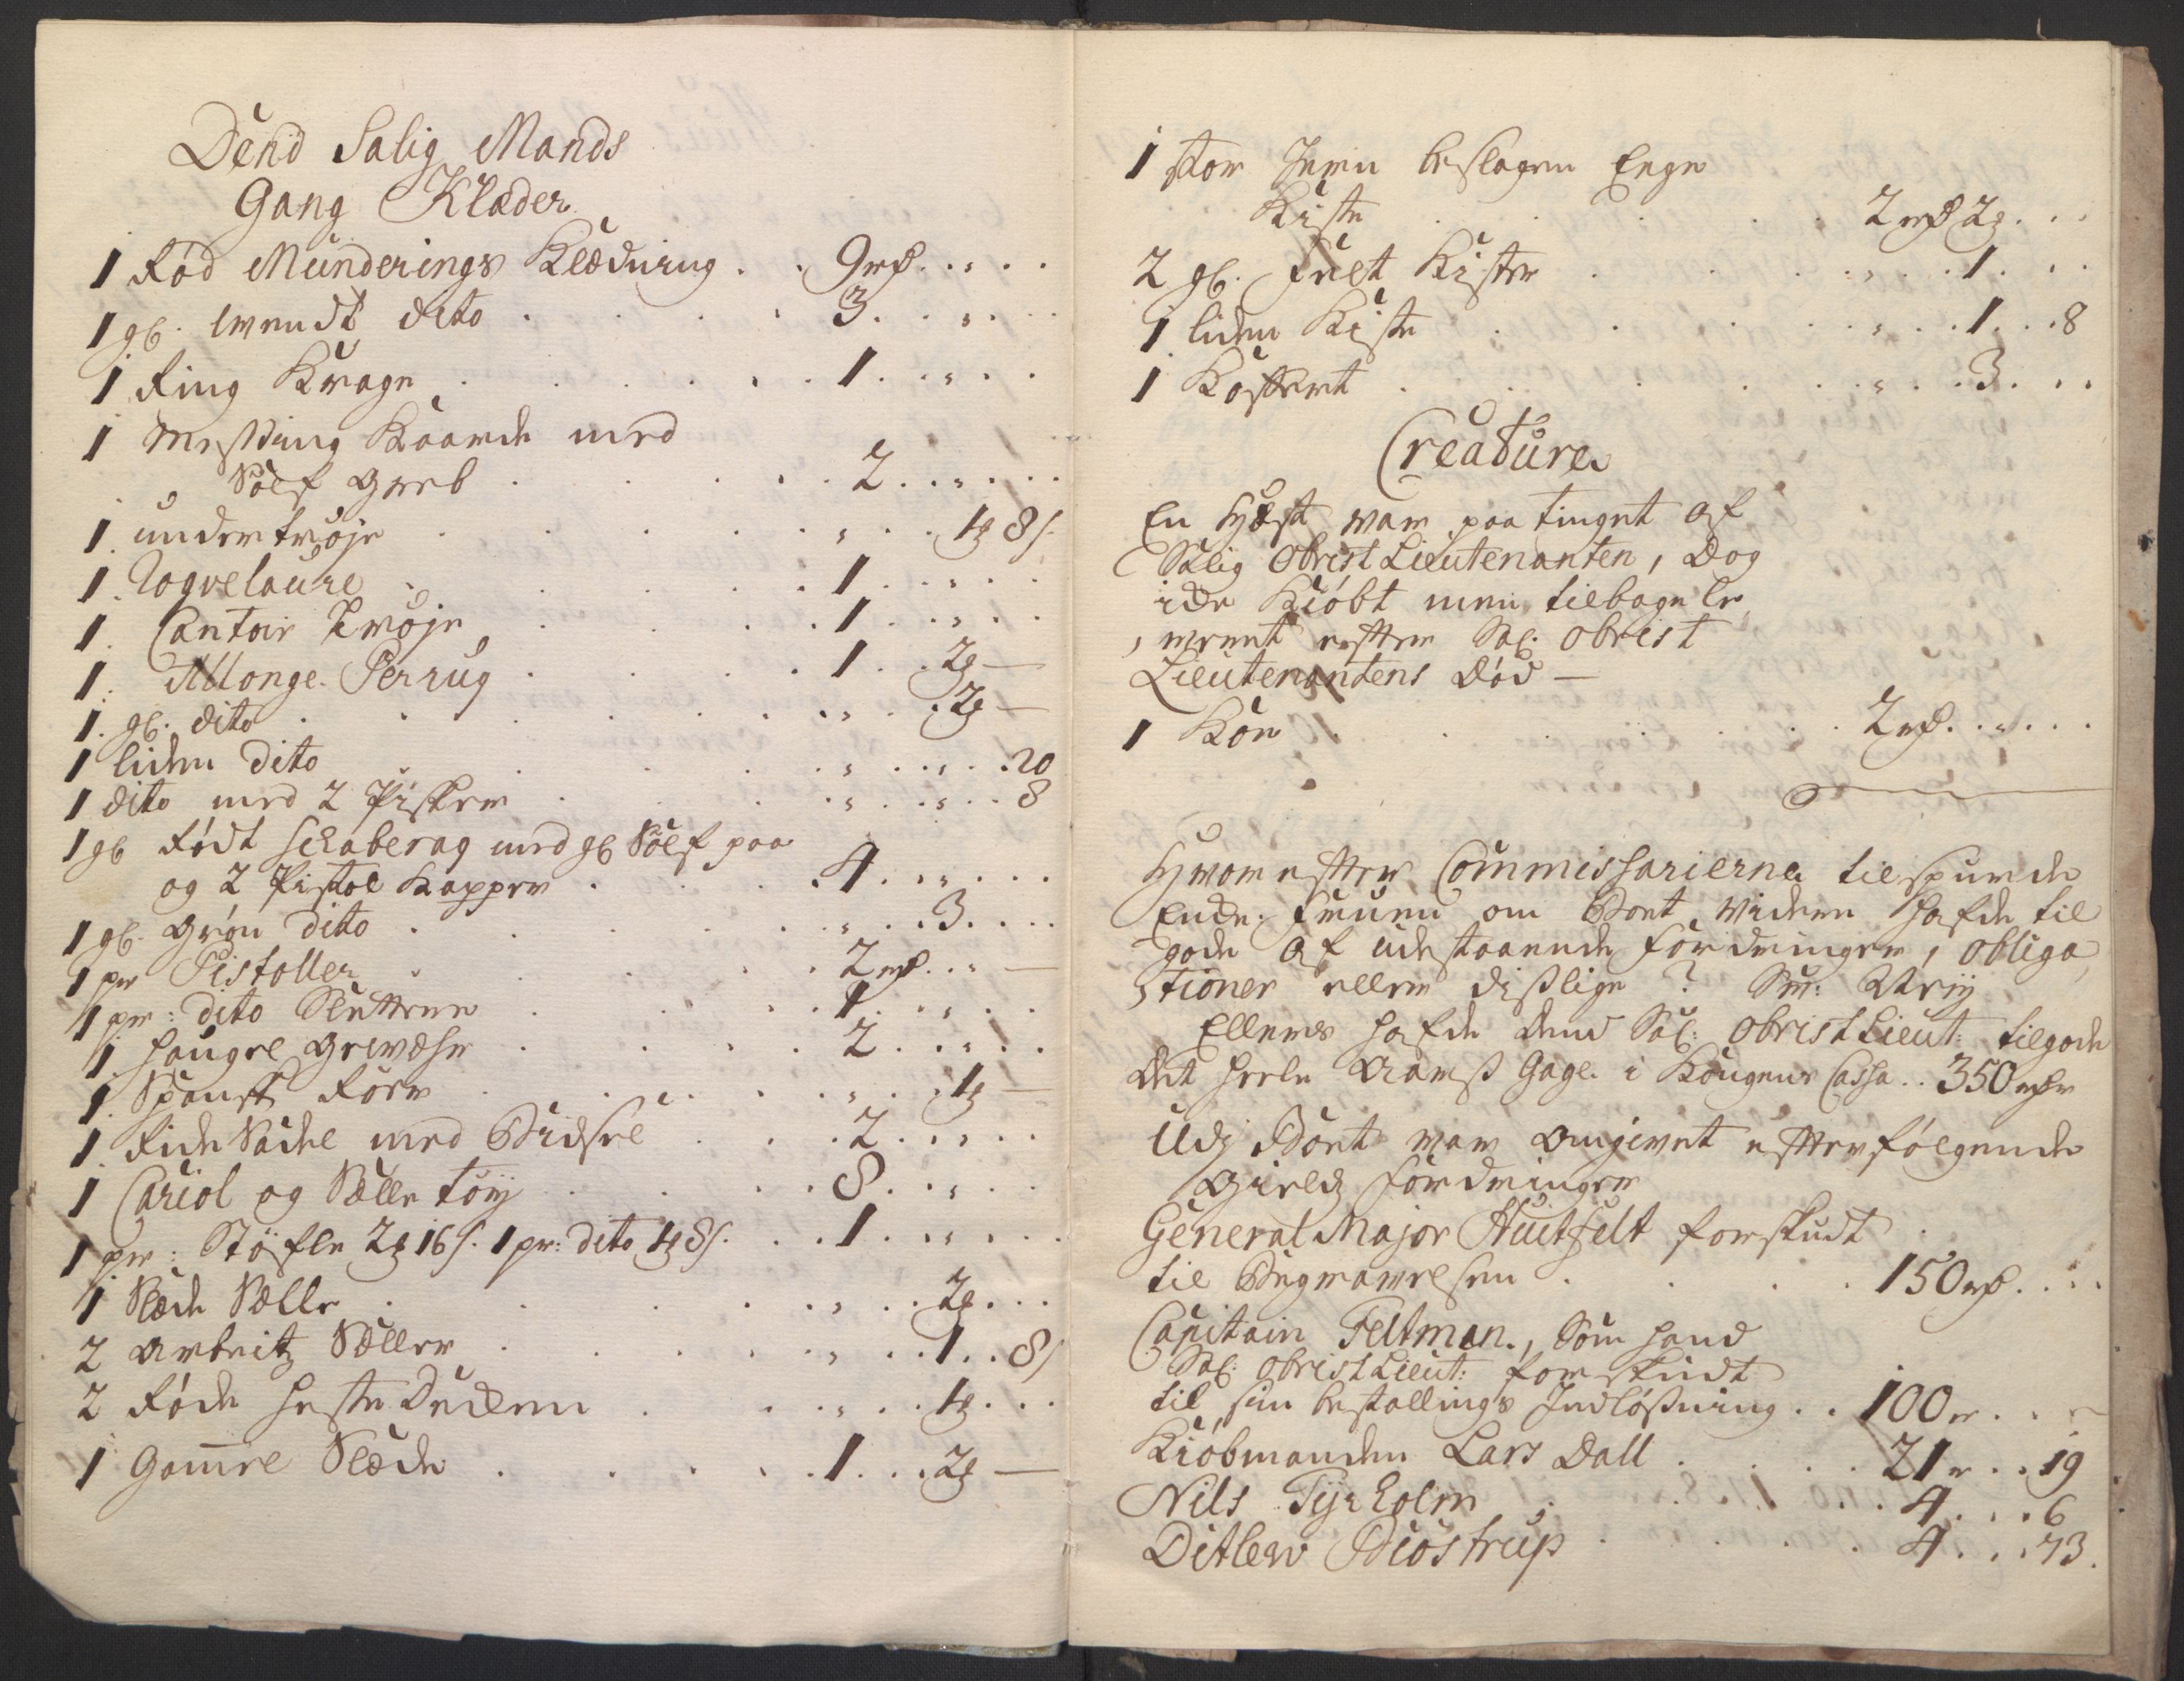 Dend Salig Mands
Gang Klæder
1 Rød Munderings Klædning . . 9 rd. . „ . .
1 gl. wendt dito . . . 3 . . „ . .
1 Ring Krage . . . 1 . . „ . .
1 Messing Kaarde med
Sølf Greb . . . 2 . . „ . .
1. undertrøje . . . „ . . 1 ꝑ 8 s.
1. Roqvelaure . . . 1 . . „ . .
1. Cantoir Trøje . . . 1 . . „ . .
1. Allonge Perrug . . . 1 . . 2 ꝑ —
1. gl. dito . . . „ . . 2 ꝑ —
1 liden dito . . . „ . . „ . . 20
1 dito med 2 Pisker . . . „ . . „ . . 8
1 gl Rødt schaberag med gl Sølf paa
og 2 Pistol Kapper . . . 4 . . „ . .
1 gl. Grøn dito . . . „ . . 3 . . .
1 pr Pistoller . . . 2 rd. . „ —
1 pr: dito Slettere . . . 1 . . „ . .
1 haugel Gewæhr . . . 2 . . „ . .
1. Spansk Rør . . . „ . . 1 ꝑ —
1 Ride Sadel med Bidsel . . . 2 . . „ . .
1 Cariol og Sælle tøy . . . 8 . . „ . .
1 pr: Støfle 2 ꝑ 16 s. 1 pr: dito 1 ꝑ 8 s. . . 1 . . „ . .
1 Slæde Sælle . . . „ . . 2 ꝑ . .
2 Arbeitz Sæller . . . „ . . 1 . . 8 s
2 Røde heste Deckener . . . „ . . 1 ꝑ . .
1 Gam̄el Slæde . . . 1 . . 2 ꝑ —
1 stor Jern beslagen Ege
Kiste . . . 2 rd 2 ꝑ . .
2 gl. Feldt Kister . . . „ . . 1 . . .
1 liden Kiste . . . „ . . 1 . . 8
1 Koffert . . . „ . . 3 . . .
Creature
En Hæst var paa tinget af
Salig Obrist Lieutenanten, dog
icke Kiøbt men tilbage le,
, weret effter Sal. Obrist
Lieutenantens død —
1 Koe . . . 2 rd. . „ . .
Hvorefter Commissarierne tilspurde
Encke Fruen om Boet videre hafde til
gode af udestaaende fordringer, obliga,
,tioner eller disslige? Sur: Ney
Ellers hafde dend Sal: Obrist Lieut: tilgode
det heele Aars Gage i Kongens Cassa . . 350 rdr
Udj Boet var Angivet effterfølgende
Gields fordringer
General Major Huitfelt forskudt
til Begravelsen . . . 150 rd. . . .
Capitain Feltman, som hand
Sal: Obrist Lieut: forskudt
til sin bestallings Indløsning . . 100 r. . .
Kiobmanden Lars Dall . . . 21 r . . 19
Nils Tyrholm . . . 4 . . . 6
Ditlew Diostrup . . . 4 . . . 73.